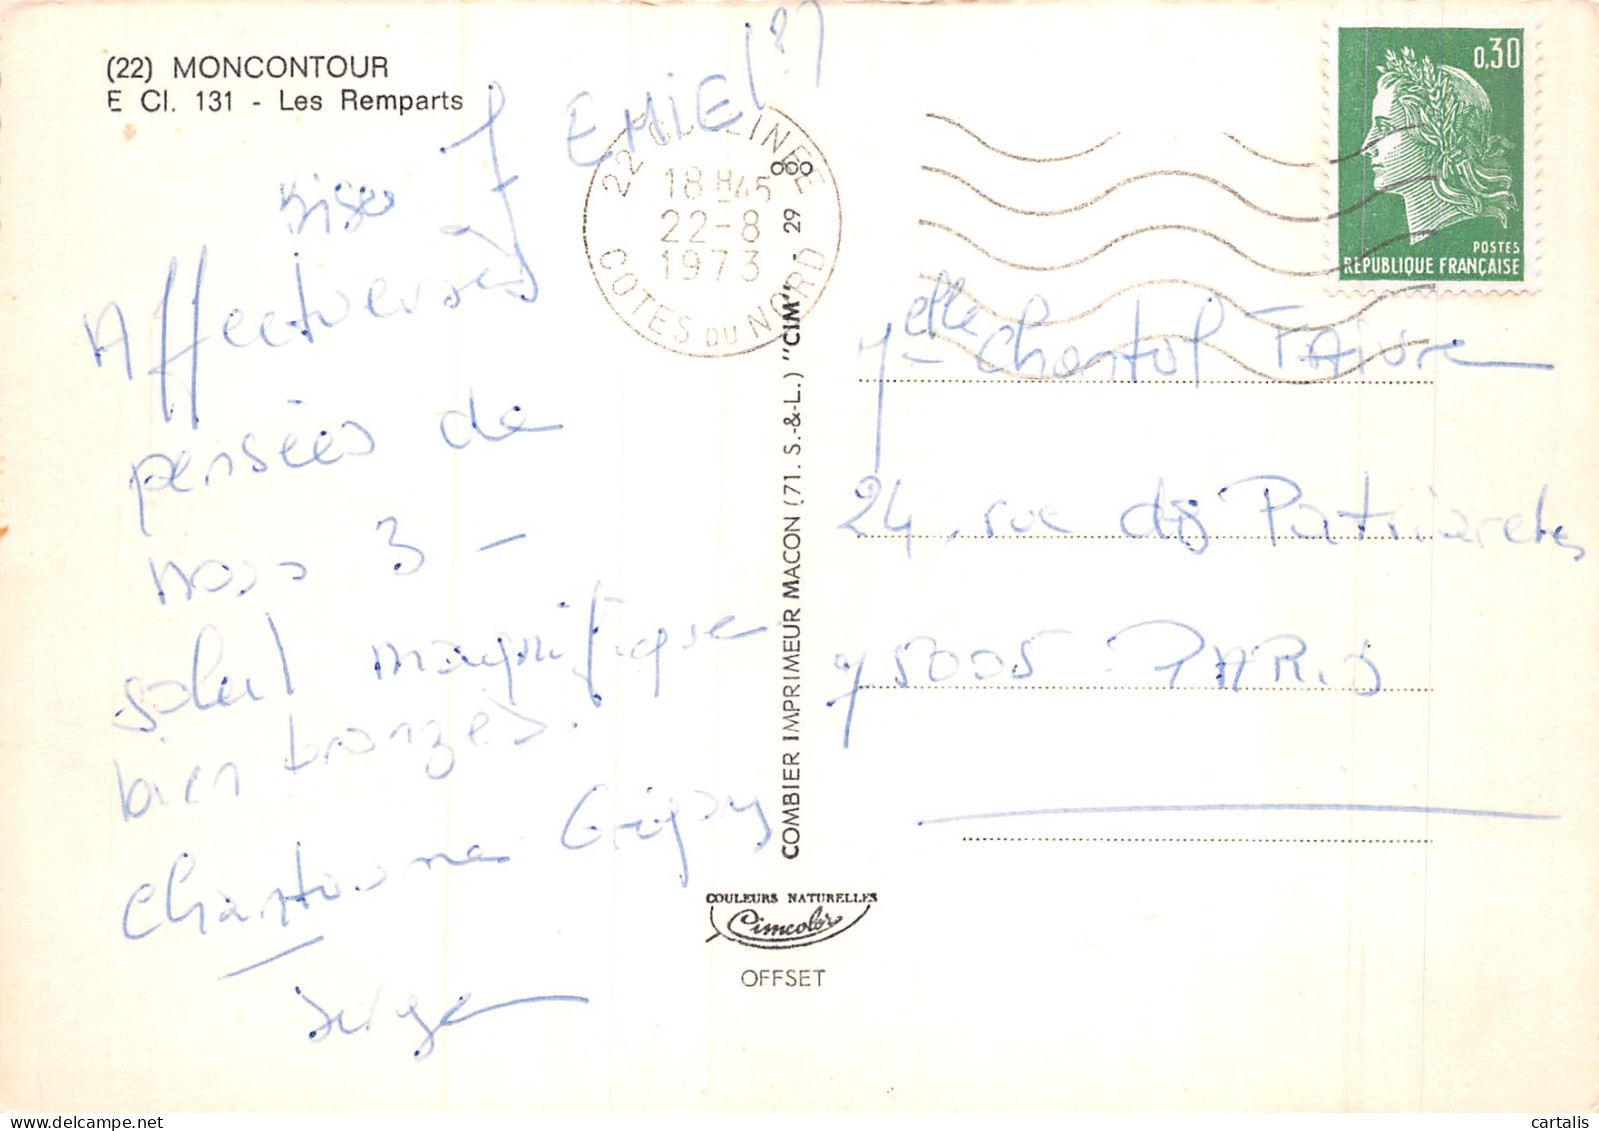 (22) MONCONTOUR
E Cl. 131 - Les Remparts
EMIE (?)
Affectueuses
pensées de
nous 3 -
soleil magnifique
bien bronzés.
Serge
22
18 H45
22-8
1973
COTES DU NORD
0,30
POSTES
REPUBLIQUE FRANÇAISE
COMBIER IMPRIMEUR MACON (71. S.-&-L.) "CIM" - 29
Melle Chantal FAIVRE
24, rue des Patriarches
75005 PARIS
COULEURS NATURELLES
Cimcolor
OFFSET
cartalis